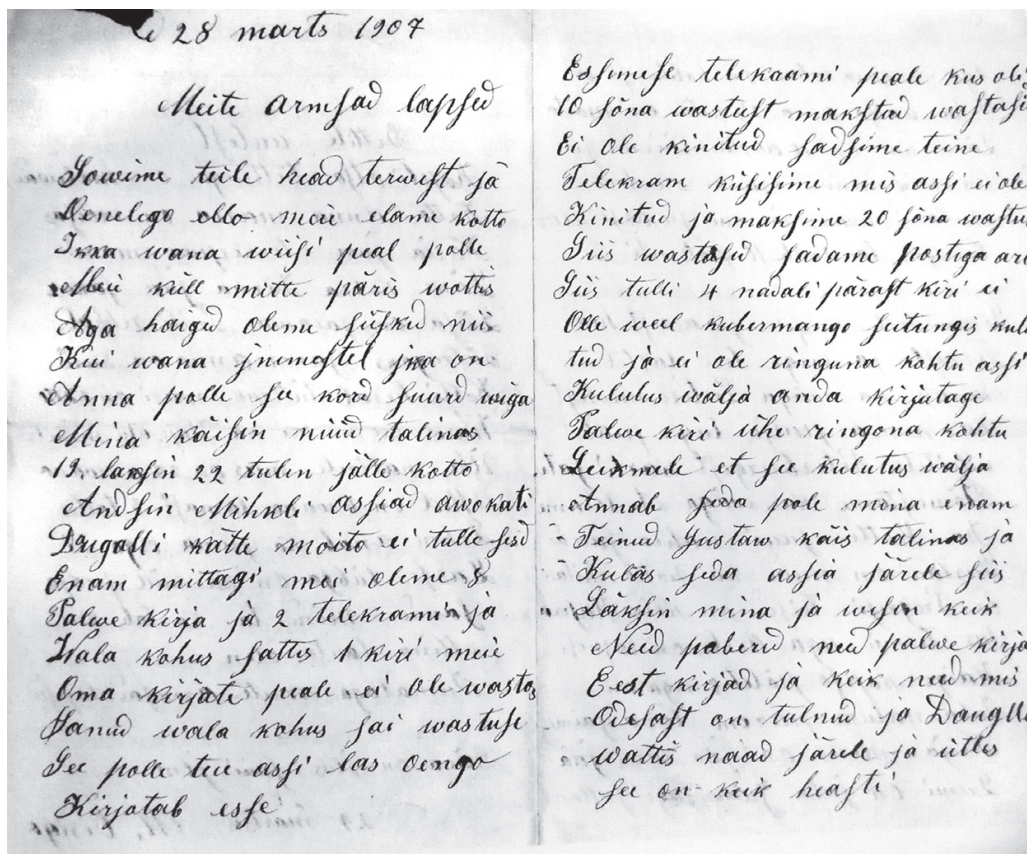 28 marts 1907
Meite armsad lapsed
Sowime teile head terwest ja
Oenelego ello meie elame kotto
Ikka wana wiisi peal polle
Meie küll mitte päris wottis
Aga haiged oleme siiskid nii
Kui wana jnimestel jkka on
Anna polle see kord suurd wiga
Mina käisin nüüd talinas
19 laksin 22 tulin jälle kotto
Andsin Mihkli assiad awokati
kätte moito ei tulle sest
Enam mittagi mei oleme 8
Palwe kirja ja 2 telekrami ja
Wala kohus sattis 1 kiri meie
Oma kirjate peale ei ole wastos
Sanud wala kohus sai wastuse
See polle teie assi las oengo
Kirjotab esse
Essimese telekaami peale kus oli
10 sõna wastust makstud wastasi
Ei ole kinitud sadsime teine
Telekram küsisime mis assi ei ole
Kinitud ja maksime 20 sõna wastu
Siis wastasid sadame postiga are
Siis tulli 4 nadali pärast kiri ei
Olle weel kubermango seitungis kulu
tud ja ei ole ringuna kohtu assi
Kulutus wälja anda kirjutage
Palwe kiri ühe ringona kohtu
et see kulutus wälja
Annab seda pole mona enam
Teinud Justaw käis talinas ja
Kulas seda assia järele siis
Läksin mina ja wisin keik
Need paberid need palwe kirja
Eest kirjad ja keik need mis
Odesast on tulnud ja
wattis naad järele ja ütles
see on keik heasti